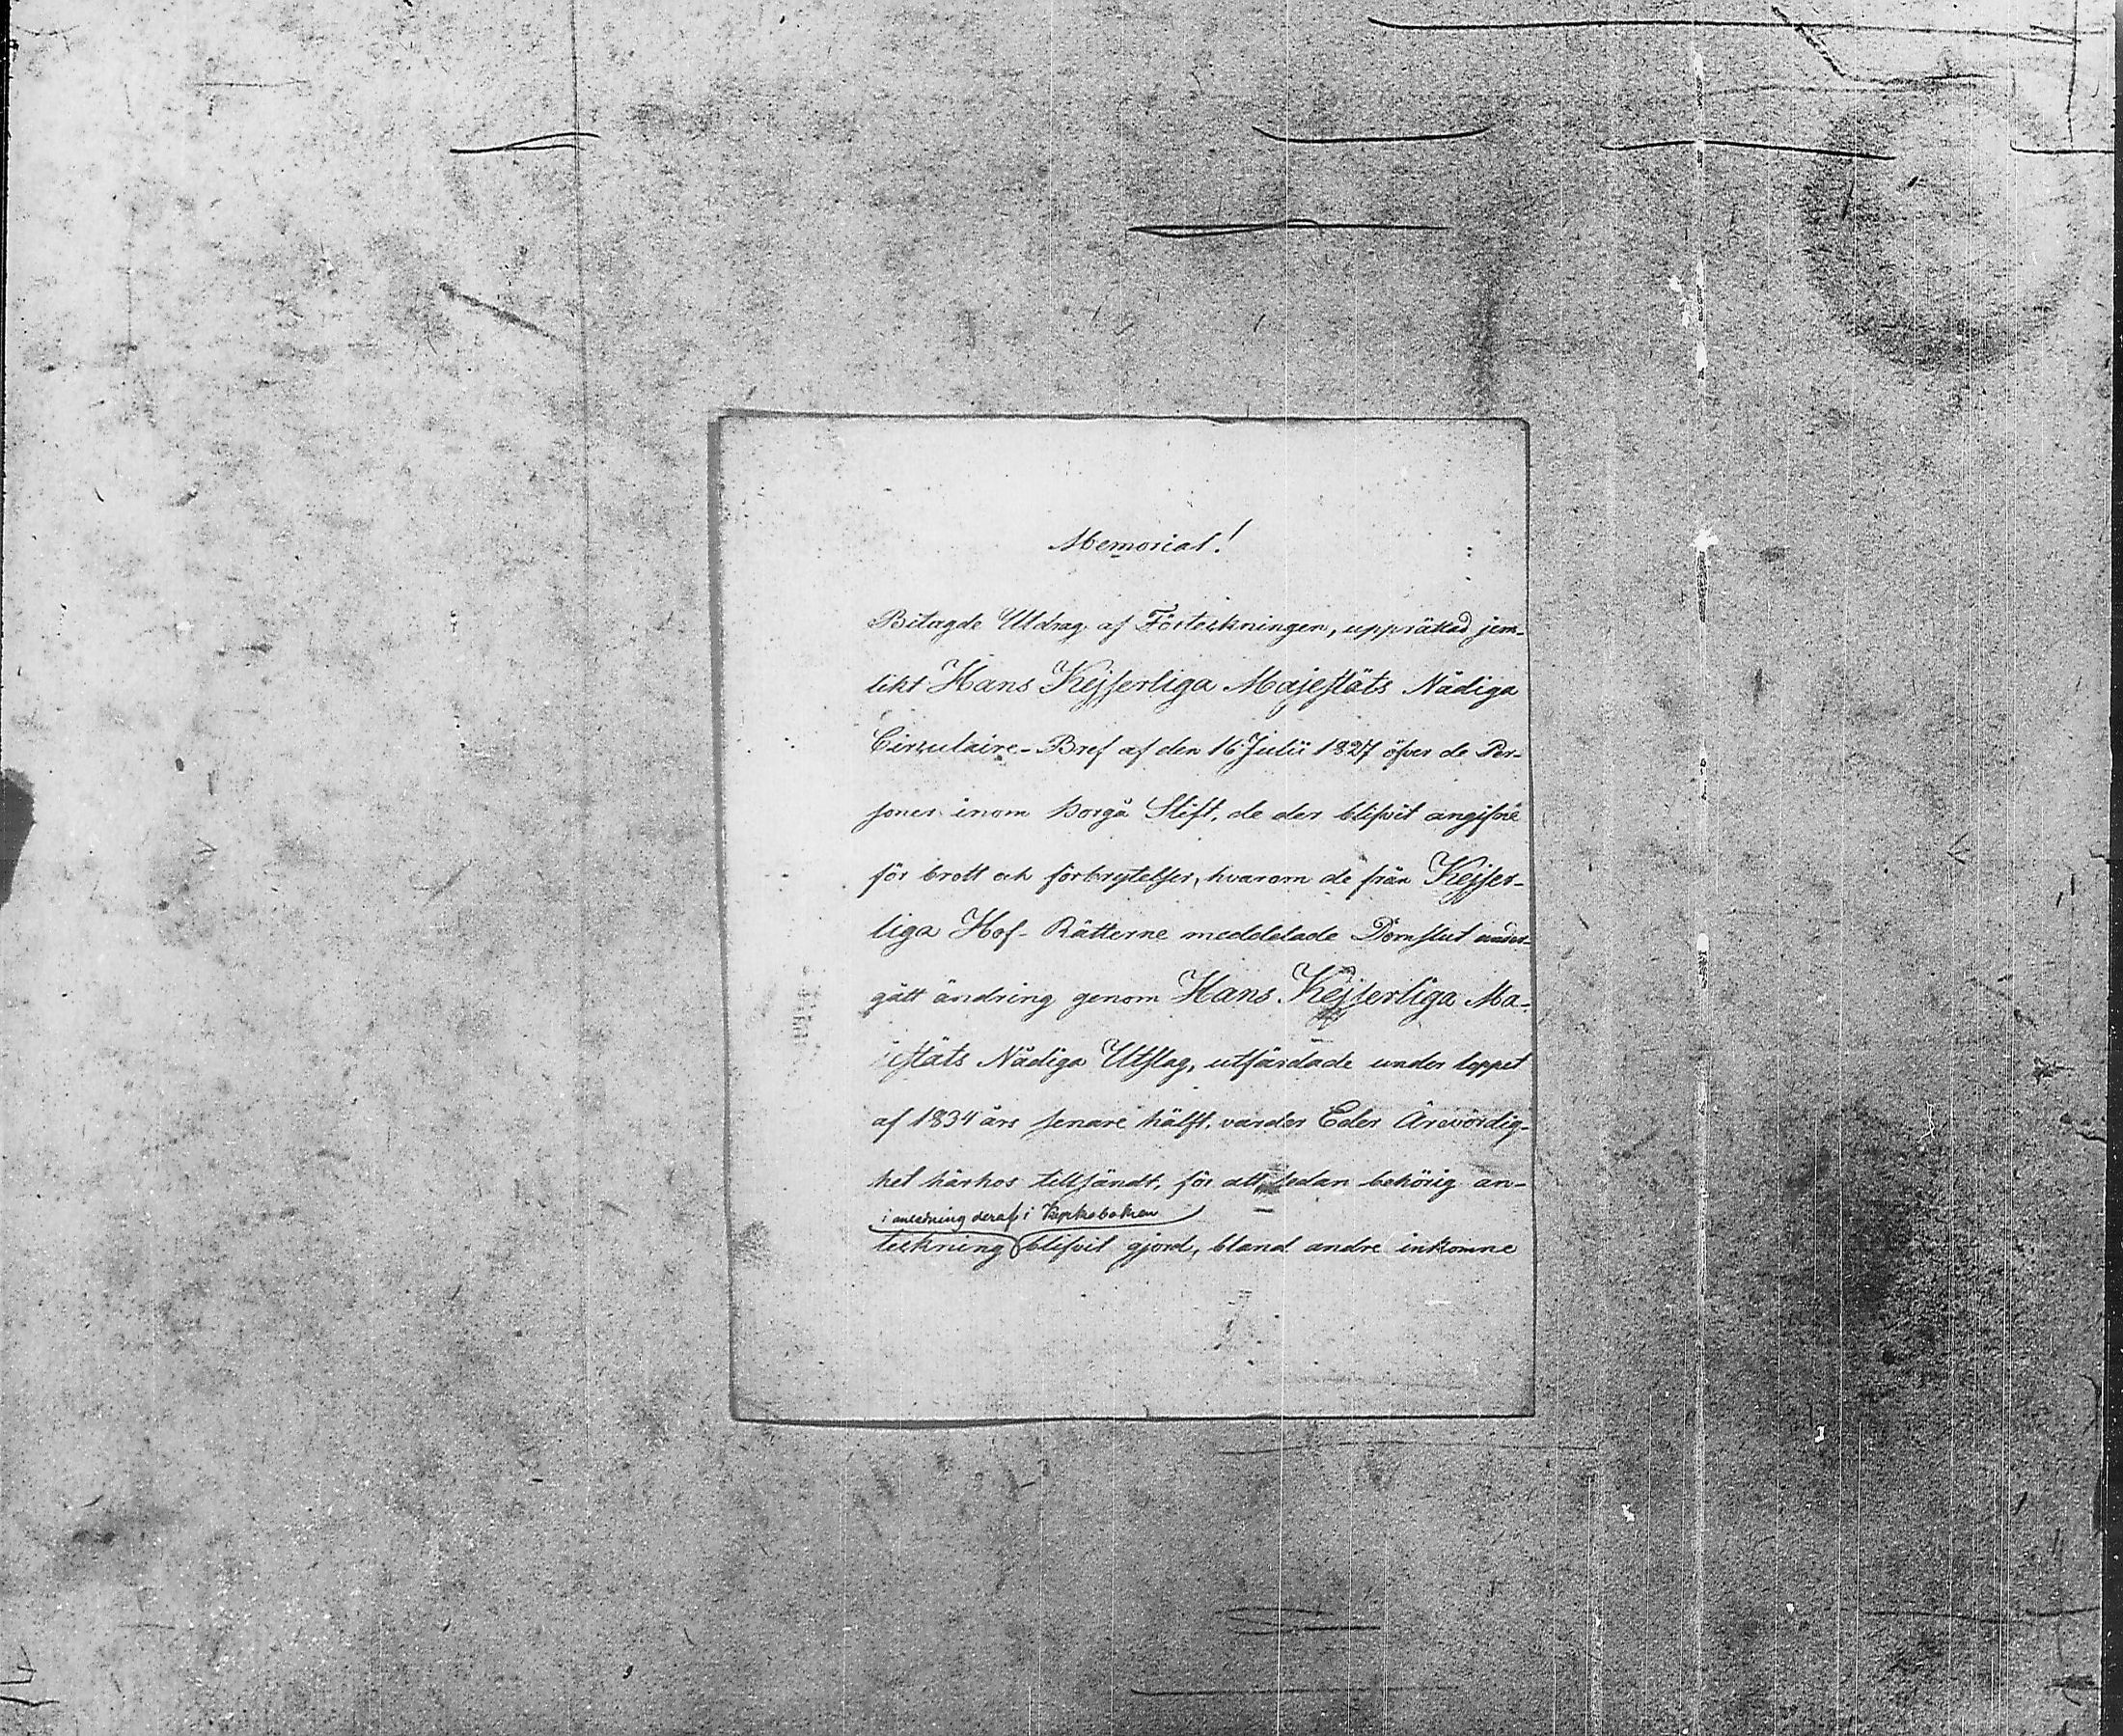 Memorial!
Bilagde Utdrag af Förteckningen, upprättad jem-
likt Hans Kejserliga Majestäts Nådiga
Circulaire-Bref af den 16 Julii 1827 öfver de Per-
soner inom Borgå Stift, de der blifvit angifne
för brott och förbrytelser, hvarom de från Kejser-
liga Hof-Rätterne meddelade Domslut under-
gått ändring genom Hans Kejserliga Ma-
jestäts Nådiga Utslag, utfärdade under loppet
af 1834 års senare hälft, varder Eder Ärevördig-
het härhos tillsändt, för att sedan behörig an-
i anledning deraf i Kyrkoboken
teckning blifvit gjord, bland andre inkomne